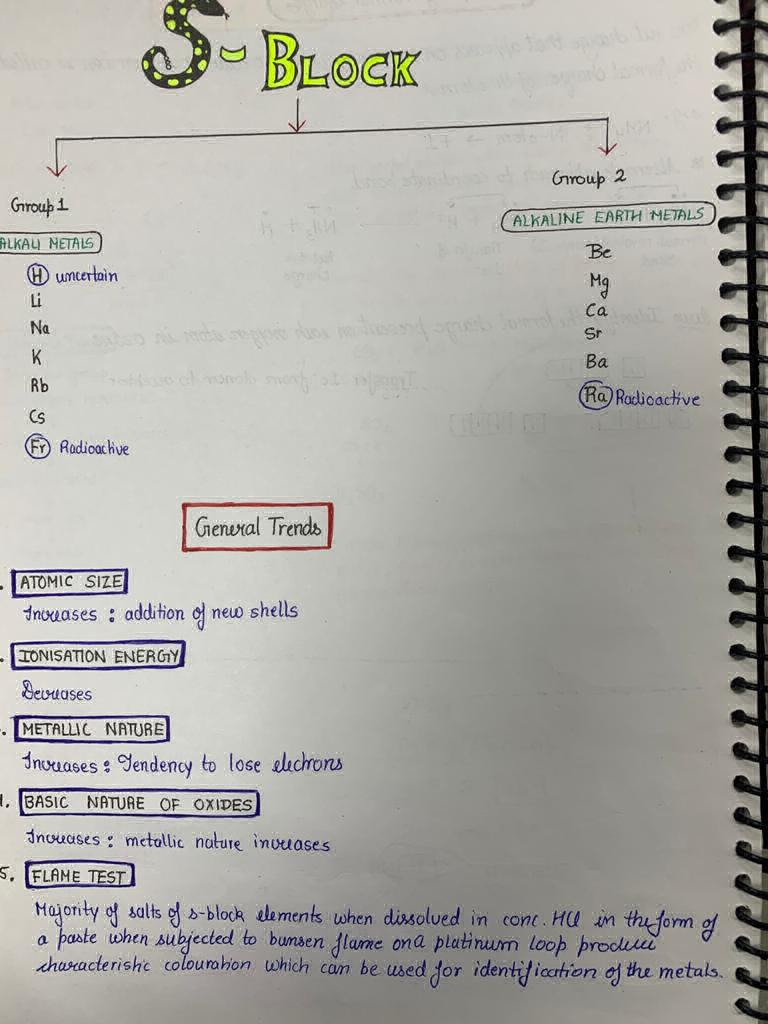 S-BLOCK
Group 1
Group 2
ALKALI METALS
ALKALINE EARTH METALS
H uncertain
Li
Na
K
Rb
Cs
Fr Radioactive
Be
Mg
Ca
Sr
Ba
Ra Radioactive
General Trends
ATOMIC SIZE
Increases : addition of new shells
IONISATION ENERGY
Decreases
METALLIC NATURE
Increases : Tendency to lose electrons
BASIC NATURE OF OXIDES
Increases : metallic nature increases
5. FLAME TEST
Majority of salts of s-block elements when dissolved in conc. HCl in the form of
a paste when subjected to bunsen flame on a platinum loop produce
characteristic colouration which can be used for identification of the metals.